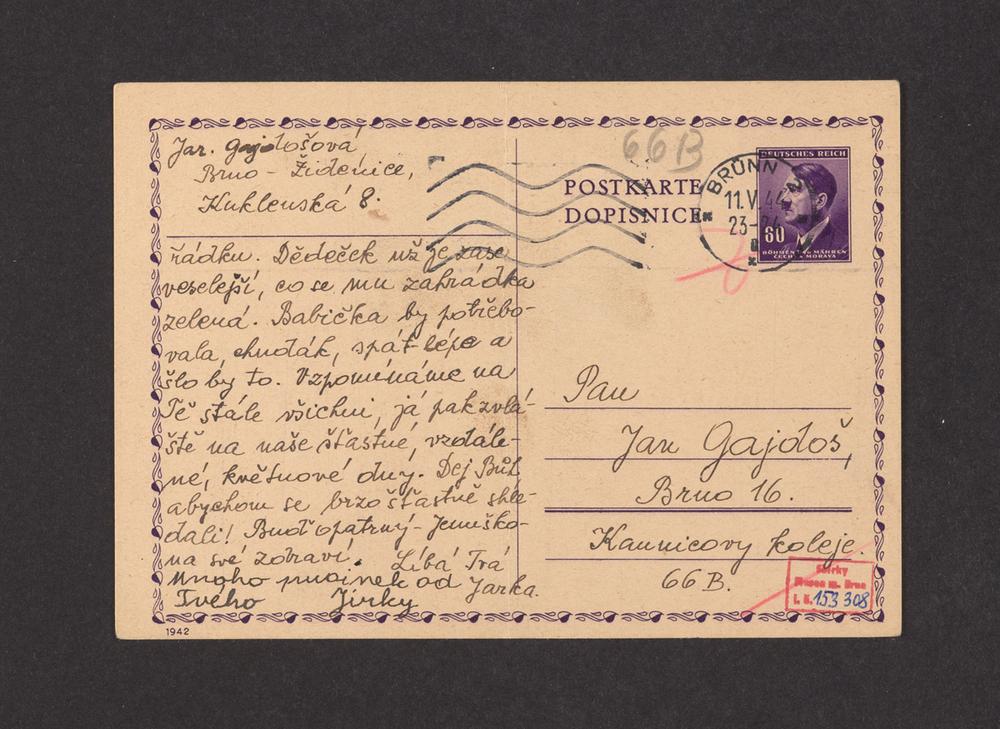 Jar. Gajdošová
Brno - Židenice,
Kuklenská 8.
řádku. Dědeček už je zase
veselejší, co se mu zahrádka
zelená. Babička by potřebo-
vala, chudák, spát lépe a
šlo by to. Vzpomínáme na
Tě stále všichni, já pak zvlá-
ště na naše šťastné, vzdále-
né, květnové dny. Dej Bůh
abychom se brzo šťastně shle-
dali! Buď opatrný - Jeníško-
na své zdraví. Líbá Tvá
Jarka.
Mnoho pusinek od
Tvého Jirky
1942
66B
POSTKARTE
DOPISNICE
BRÜNN
11.V.44
23-24
DEUTSCHES REICH
60
BÖHMEN UND MÄHREN
ČECHY A MORAVA
Pan
Jan Gajdoš,
Brno 16.
Kaunicovy koleje.
66 B.
Sbírky
Musea m. Brna
i. č. 153 308